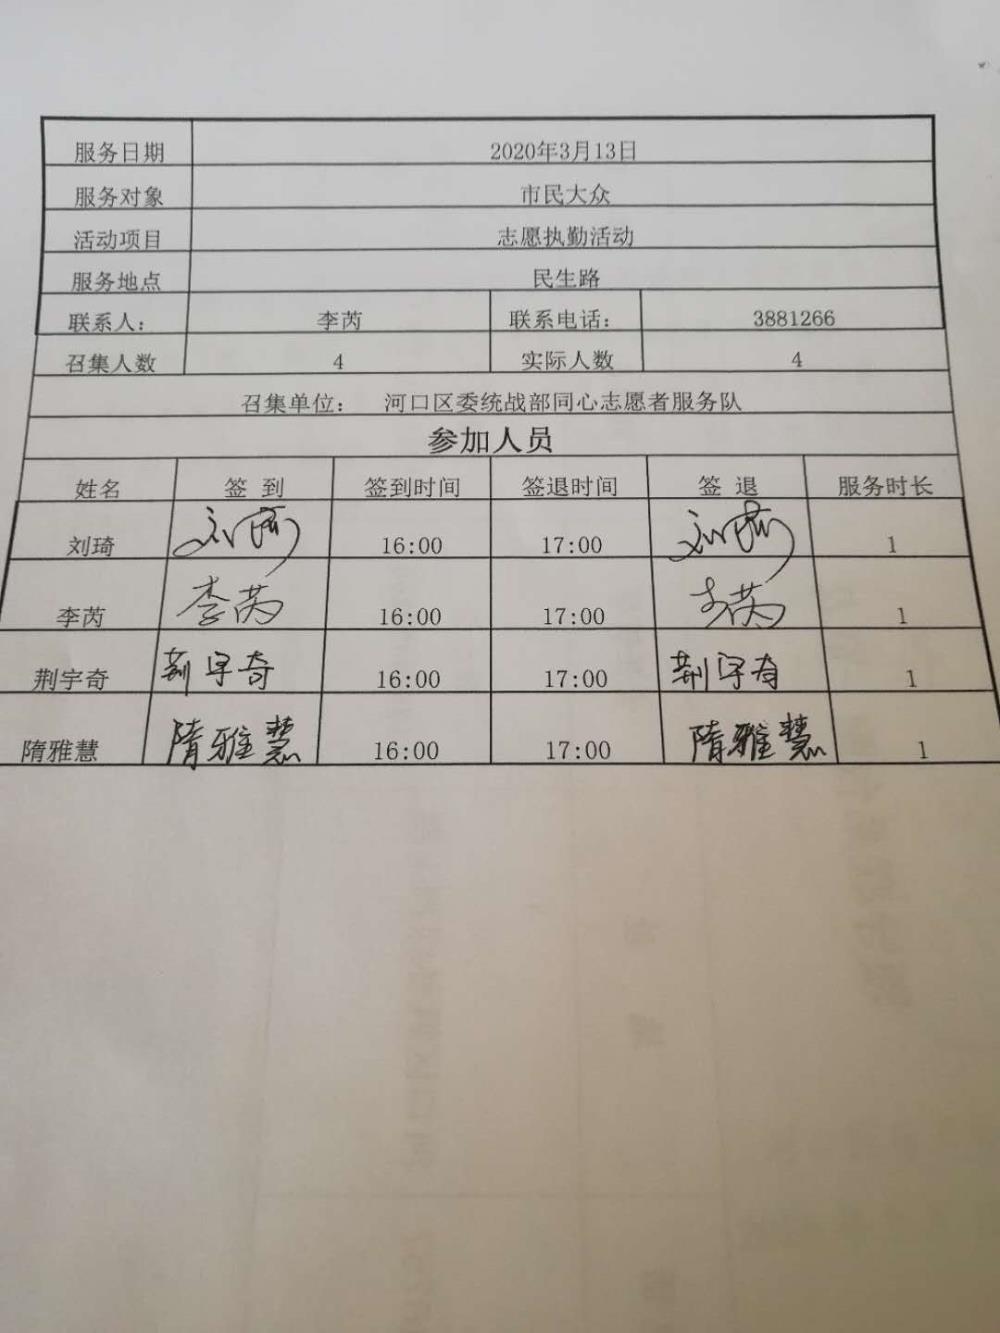 服务日期 2020年3月13日
服务对象 市民大众
活动项目 志愿执勤活动
服务地点 民生路
联系人： 李芮 联系电话： 3881266
召集人数 4 实际人数 4
召集单位： 河口区委统战部同心志愿者服务队
参加人员
姓名 签 到 签到时间 签退时间 签 退 服务时长
刘琦 刘琦 16:00 17:00 刘琦 1
李芮 李芮 16:00 17:00 李芮 1
荆宇奇 荆宇奇 16:00 17:00 荆宇奇 1
隋雅慧 隋雅慧 16:00 17:00 隋雅慧 1